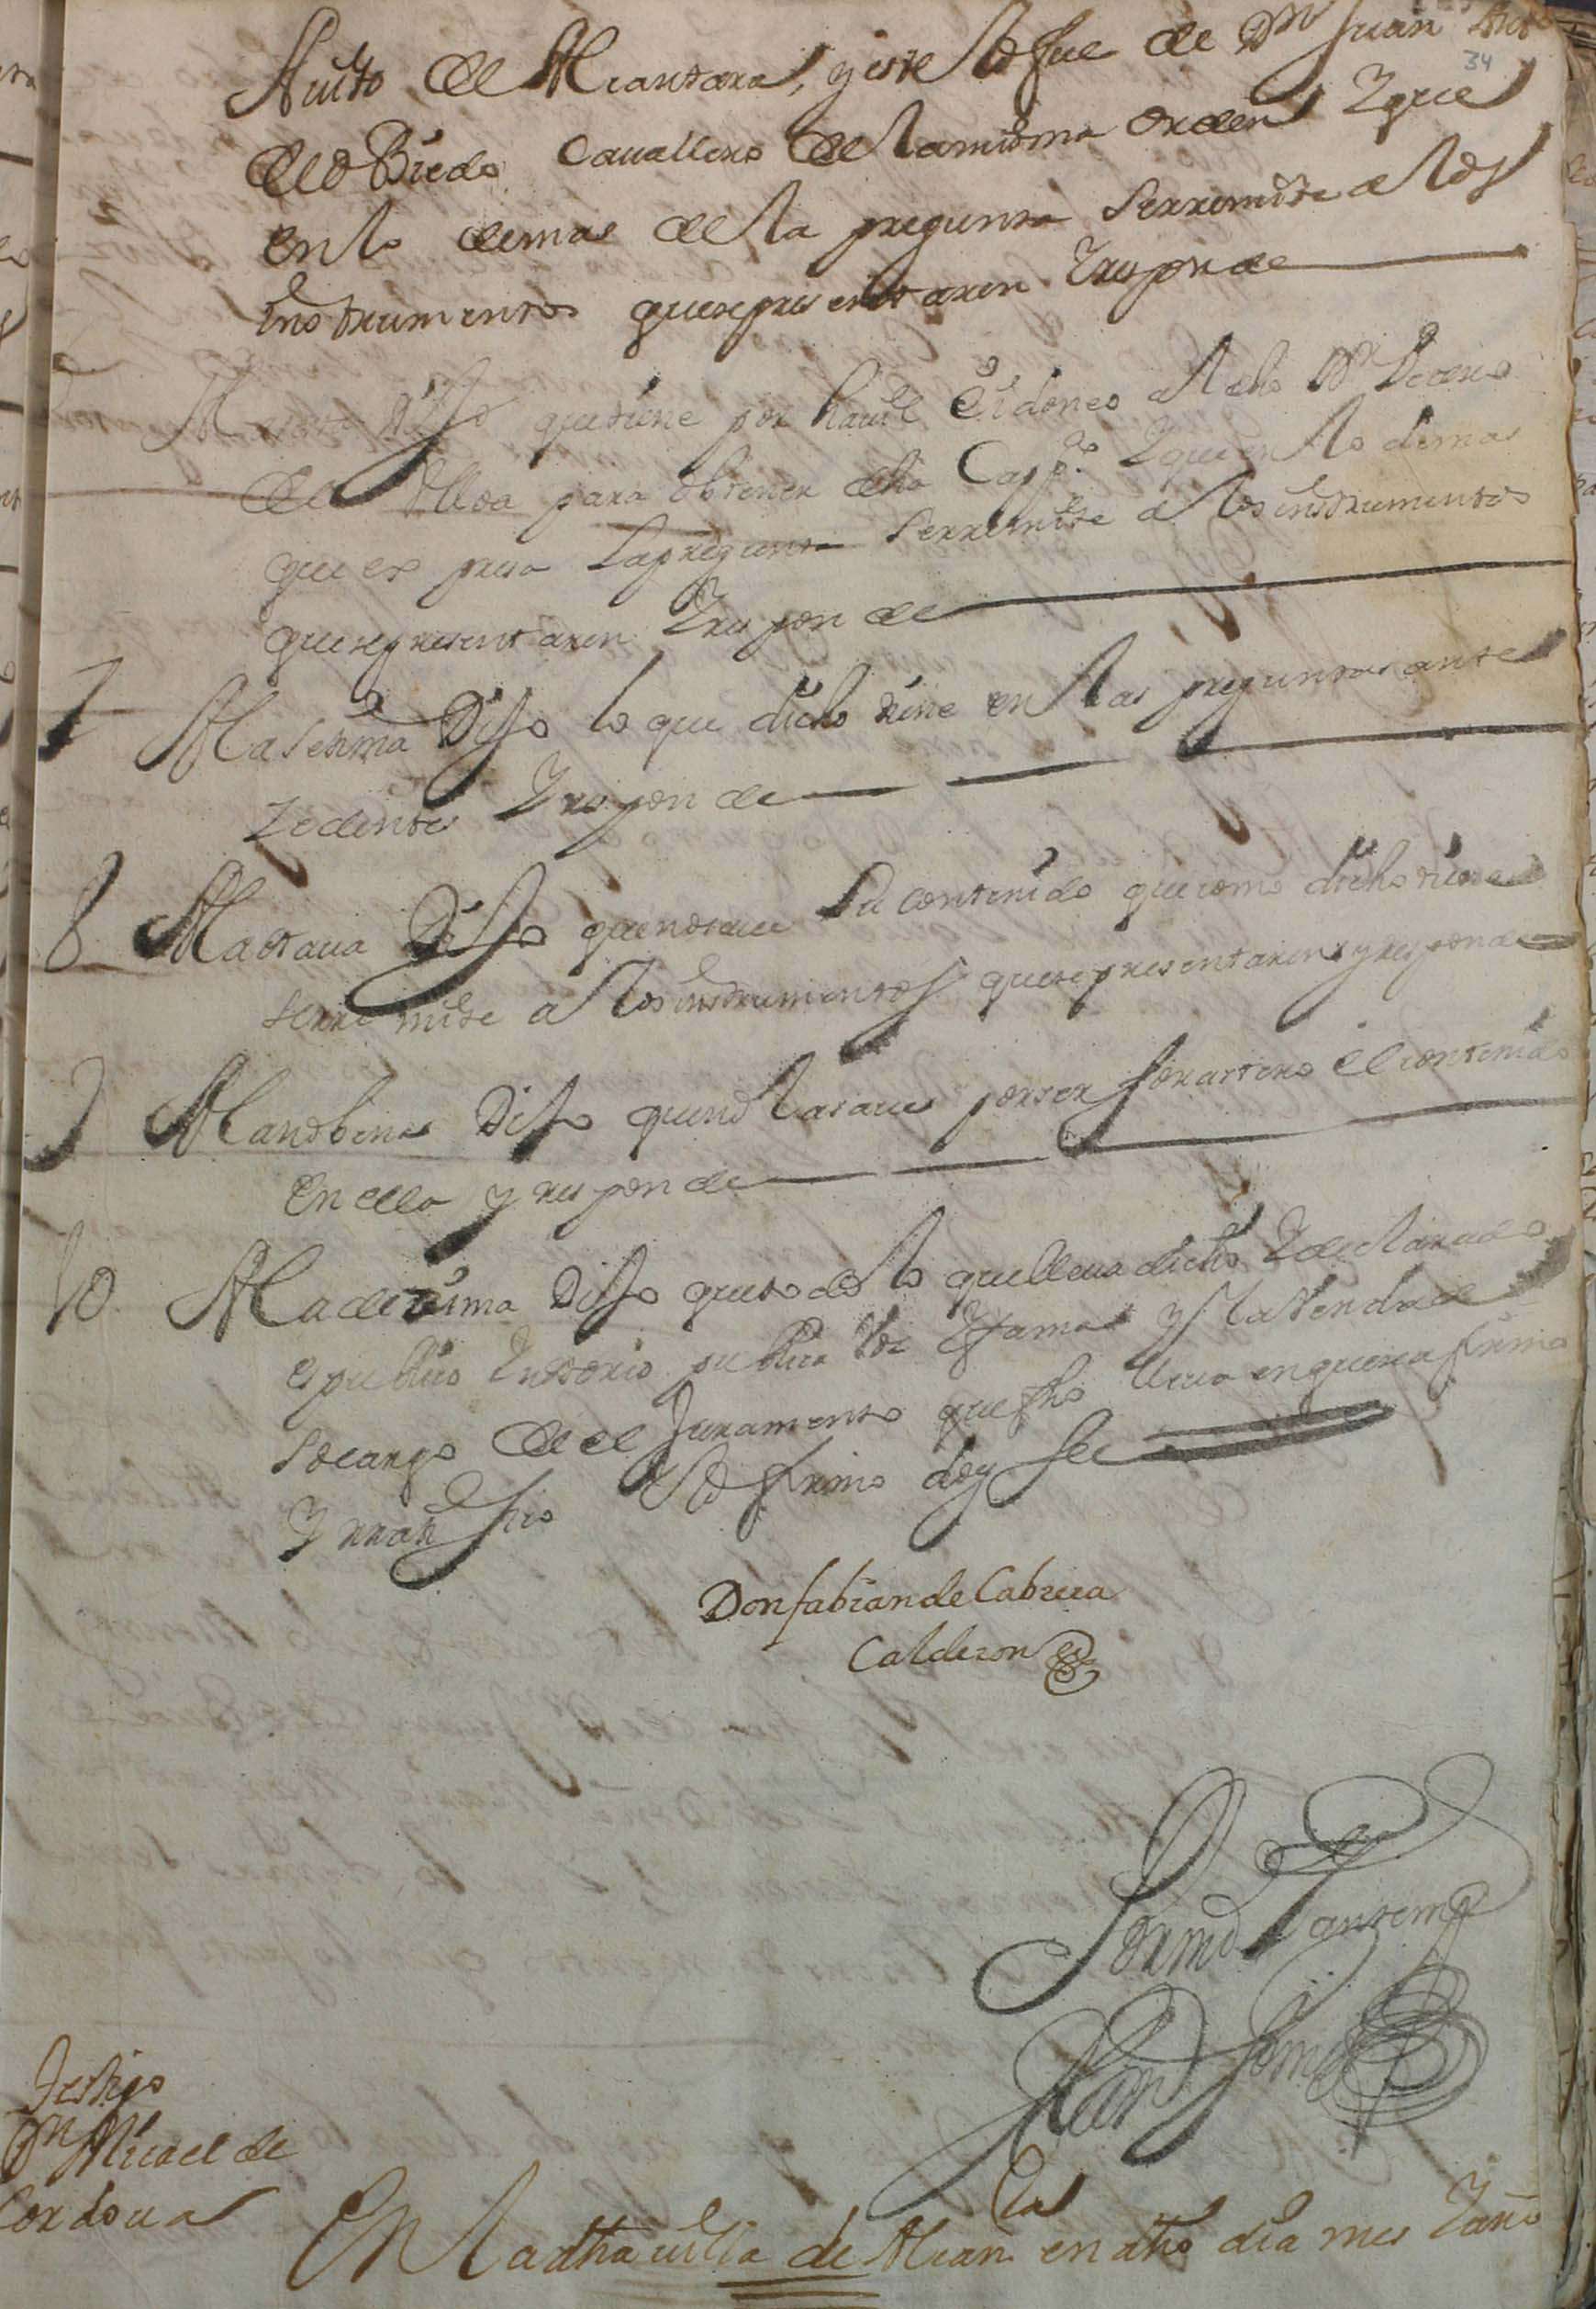 Auito de Alcantara, y este lo fue de Dn Juan
34
de obiedo Cauallero de la misma orden Y que
en lo demas de la pregunta se rremite a los
instrumentos que se presentaren Y responde
dijo que tiene por hauil e idoneo al dho Dn
de Ulloa para obtener dha Capp.a Y que en lo demas
que espresa la pregunta se rremite a los instrumentos
que se presentaren Y responde
7 A la septima Dijo lo que dicho tiene en las preguntas ante
zedentes Y responde
8 A la octaua Dijo que no saue su contenido que como dicho tiene
se rremite a los instrumentos que se presentaren y responde
9 A la nobena Dijo que no la saue por ser forastero el contenido
en ella y responde
10 A la dezima Dijo que todo lo que lleua dicho Y declarado
es publico Y notorio publica voz Y fama y la verdad
so cargo de el Juramento que fho lleua en que se afirmo
Y rratifico Y lo firmo doy fee
Don fabian de Cabrera
Calderon
Por mi Y ante mi
Juan Gomez
Testigo
Dn Micael de
Cordoua
En la dha uilla de Alcan.ra en dho dia mes Y año